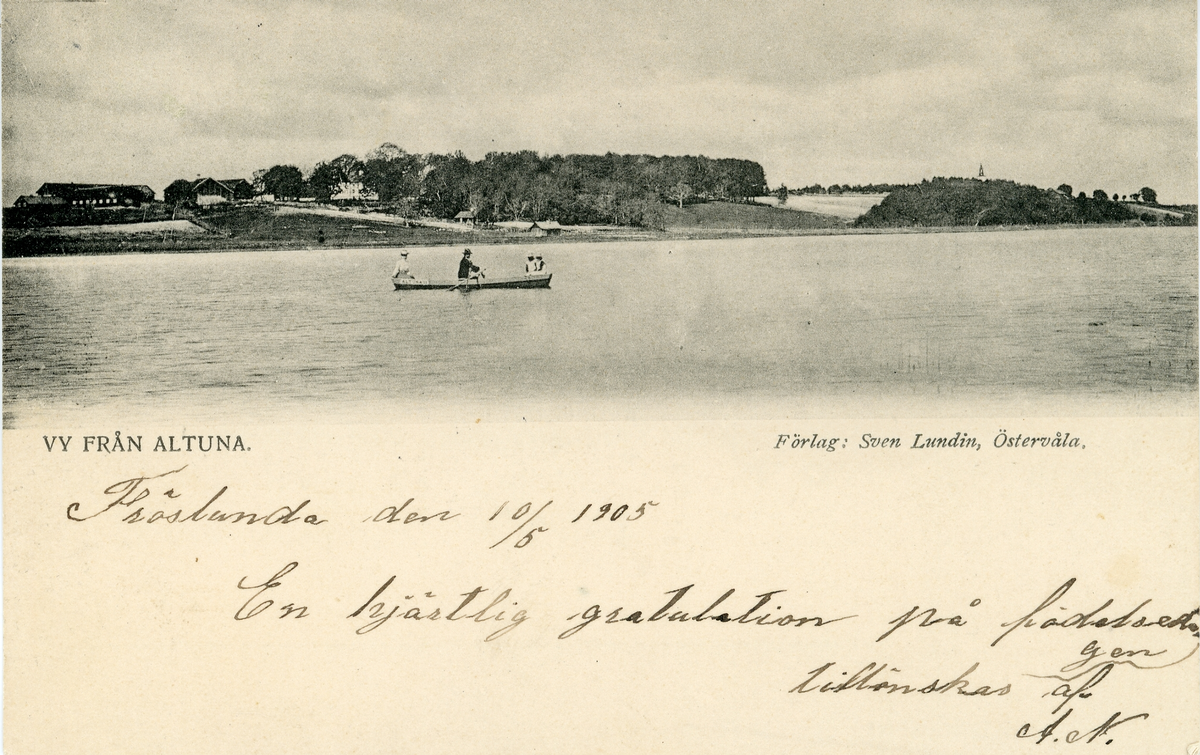 VY FRÅN ALTUNA.
Förlag: Sven Lundin, Östervåla.
Fröslunda den 10/5 1905
En hjärtlig gratulation på födelseda
gen
tillönskas af.
A. N.